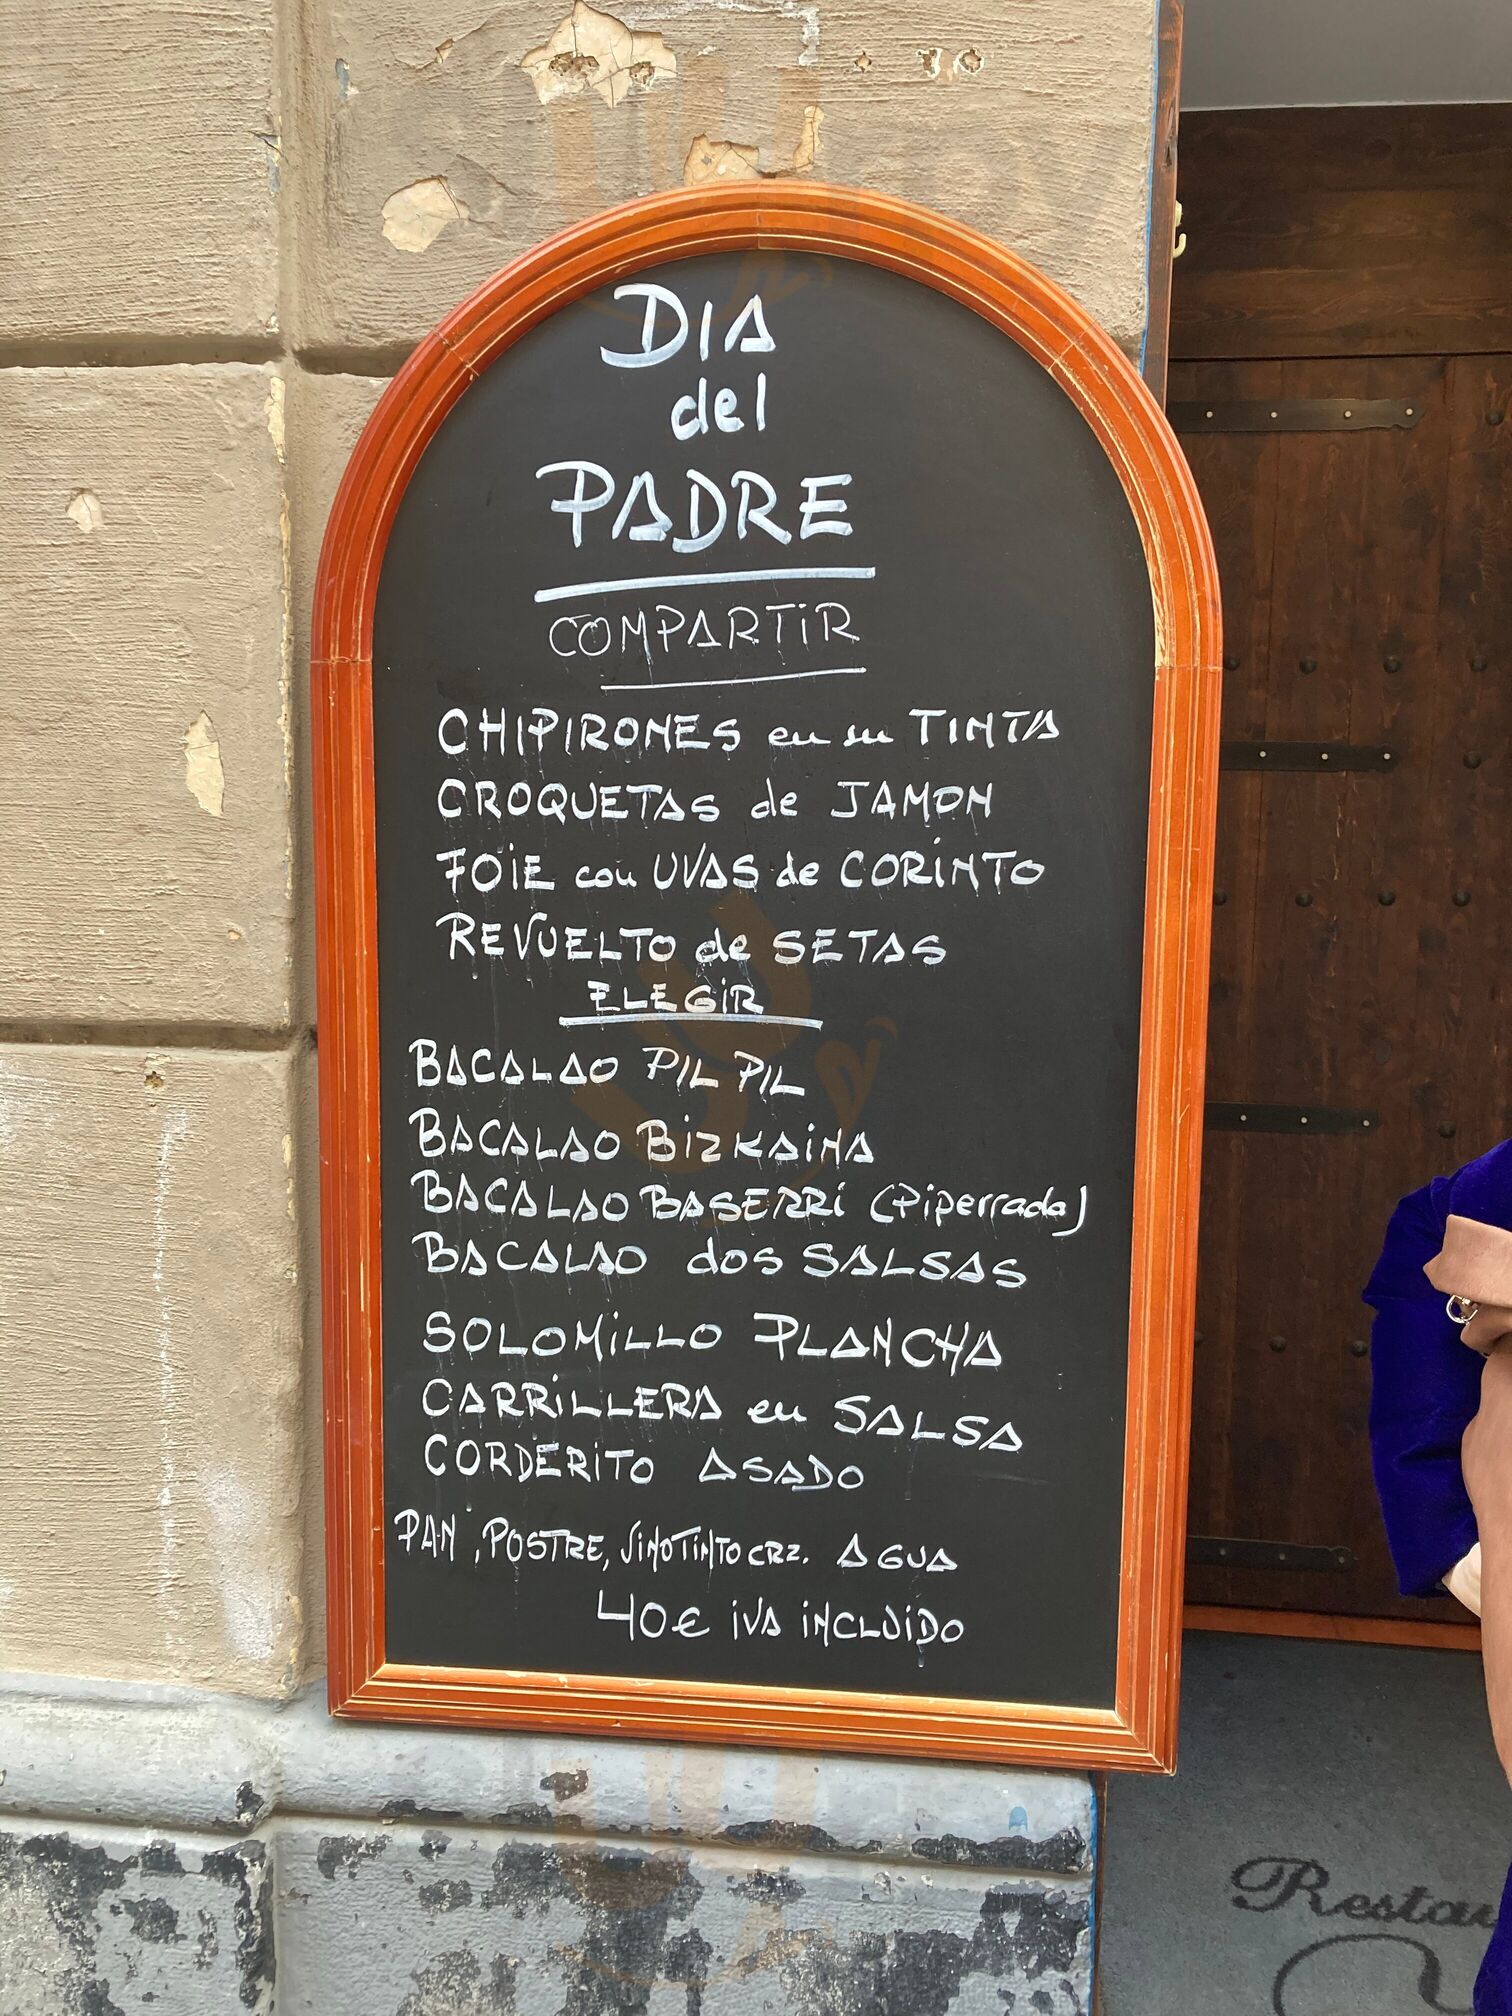 DIA
del
PADRE
COMPARTIR
CHIPIRONES en su TINTA
CROQUETAS de JAMON
FOIE con UVAS de CORINTO
REVUELTO de SETAS
ELEGIR
BACALAO PIL PIL
BACALAO BIZKAINA
BACALAO BASERRI (Piperrada)
BACALAO dos SALSAS
SOLOMILLO PLANCHA
CARRILLERA en SALSA
CORDERITO ASADO
PAN, POSTRE, VINO TINTO CRZ. AGUA
40€ IVA INCLUIDO